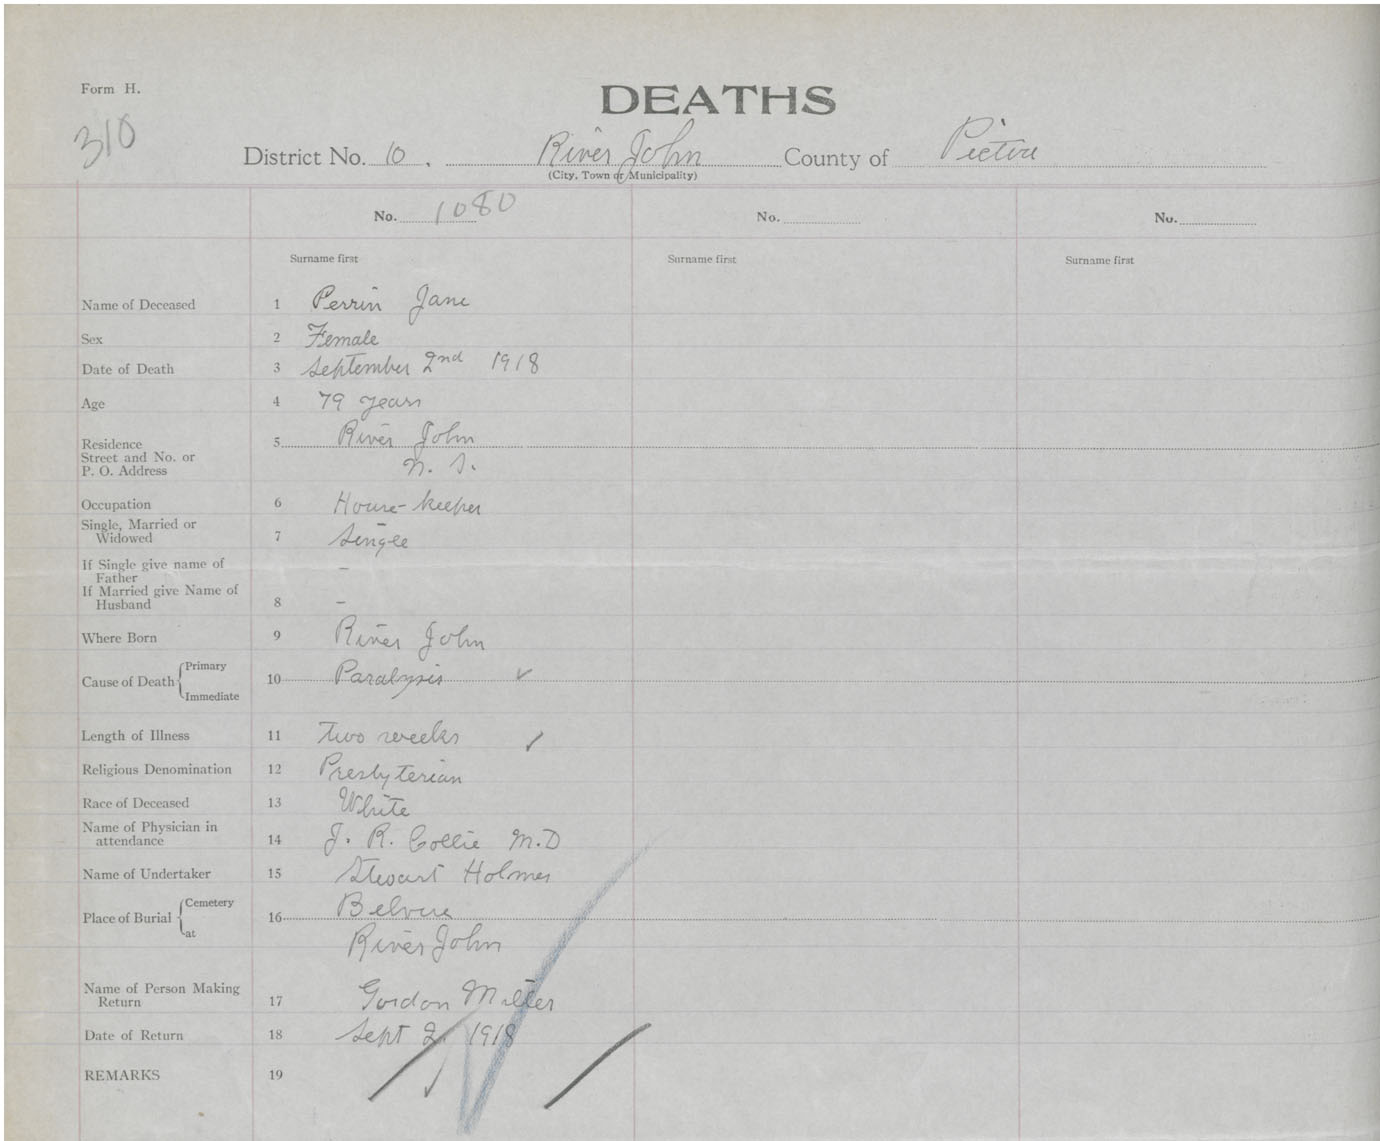 Form H.
DEATHS
310
District No. 10. River John County of Pictou
(City, Town or Municipality)
No. 1080 No. No.
Surname first Surname first Surname first
Name of Deceased 1 Perrin Jane
Sex 2 Female
Date of Death 3 September 2nd 1918
Age 4 79 years
Residence 5 River John
Street and No. or
P. O. Address N. S.
Occupation 6 House-keeper
Single, Married or
Widowed 7 Single
If Single give name of
Father –
If Married give Name of
Husband 8 –
Where Born 9 River John
Cause of Death { Primary
Immediate 10 Paralysis ✓
Length of Illness 11 two weeks ✓
Religious Denomination 12 Presbyterian
Race of Deceased 13 White
Name of Physician in
attendance 14 J. R. Collie M.D
Name of Undertaker 15 Stewart Holmes
Place of Burial { Cemetery 16 Belvue
at River John
Name of Person Making
Return 17 Gordon Miller
Date of Return 18 Sept 2, 1918
REMARKS 19